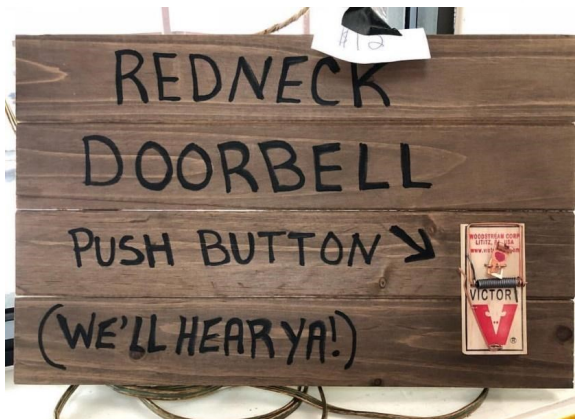 $12
REDNECK
DOORBELL
PUSH BUTTON
(WE'LL HEAR YA!)
WOODSTREAM CORP
LITITZ, PA USA
VICTOR
V
®